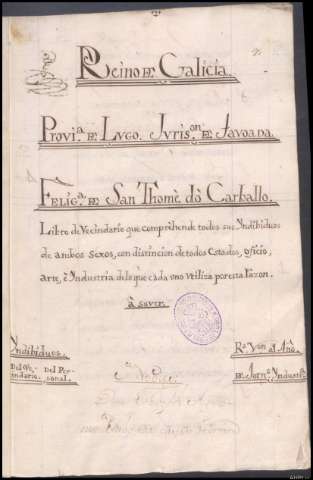 Reino de Galicia
Provi.a de Lugo. Juris.on de Tavoada.
Felig.a de San Thomè dò Carballo.
Libro de Vecindario que comprehende todos sus Yndibiduos
de ambos sexos, con distincion de todos Estados, oficio,
arte, è Industria delo que cada uno utiliza por esta razon.
à saver
Yndibiduos. Rs. Von. al Año.
Del Per-
sonal. de Jorns. Yndust.